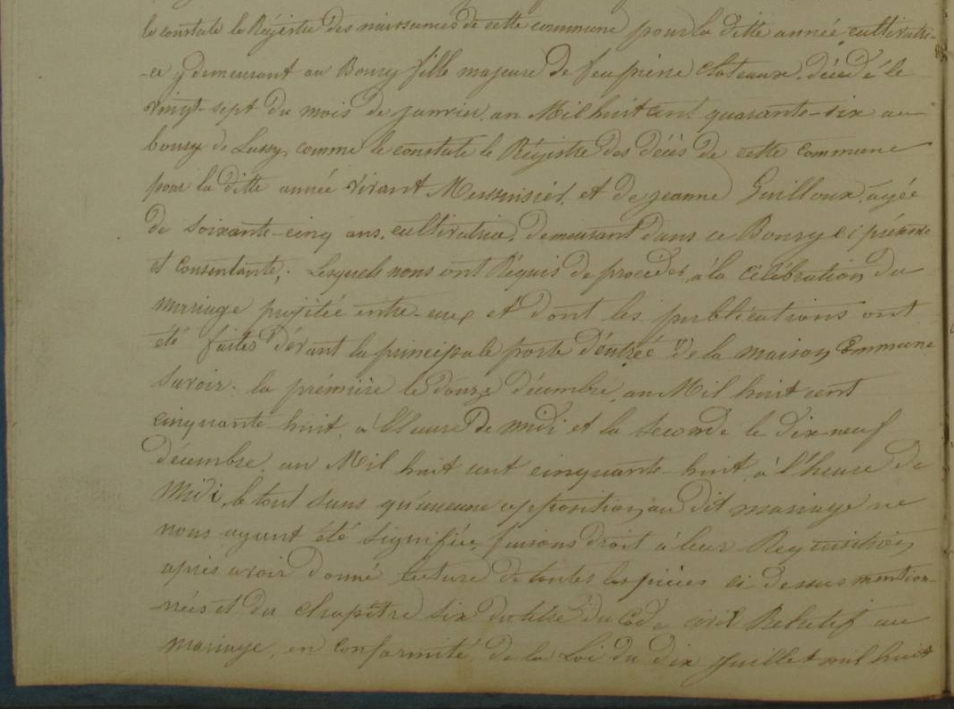 le constate le Régistre des naissances de cette commune pour la ditte année, cultivatri-
-ce y demeurant au Bourg fille majeure de feu pierre Chateaux, décédé le
vingt-sept du mois de janvier, an Mil huit cent quarante-six au
bourg de Lussy, comme le constate le Régistre des décès de cette Commune
pour la ditte année vivant Menuisier, et de jeanne Guilloux, agée
de soixante-cinq ans, cultivatrice, demeurant dans ce Bourg ci présente
et consentante; Lesquels nous ont Réquis de proceder à la célébration du
mariage projétée entre-eux et dont les publications ont
été faites dévant la principale porte d'entrée de la maison Commune
Savoir: la prémière le douze décembre, an Mil huit cent
cinquante-huit, à l'heure de midi et la seconde le dix-neuf
décembre, an Mil huit cent cinquante-huit, à l'heure de
Midi, le tout sans qu'aucune opposition, au dit mariage ne
nous ayant été signifiée, faisons droit à leur Requisition
après avoir donné lecture de toutes les pièces ci-dessus mention-
-nées et du chapitre six du titre du Code civil Relatif au
mariage, en conformité de la Loi du dix juillet mil huit